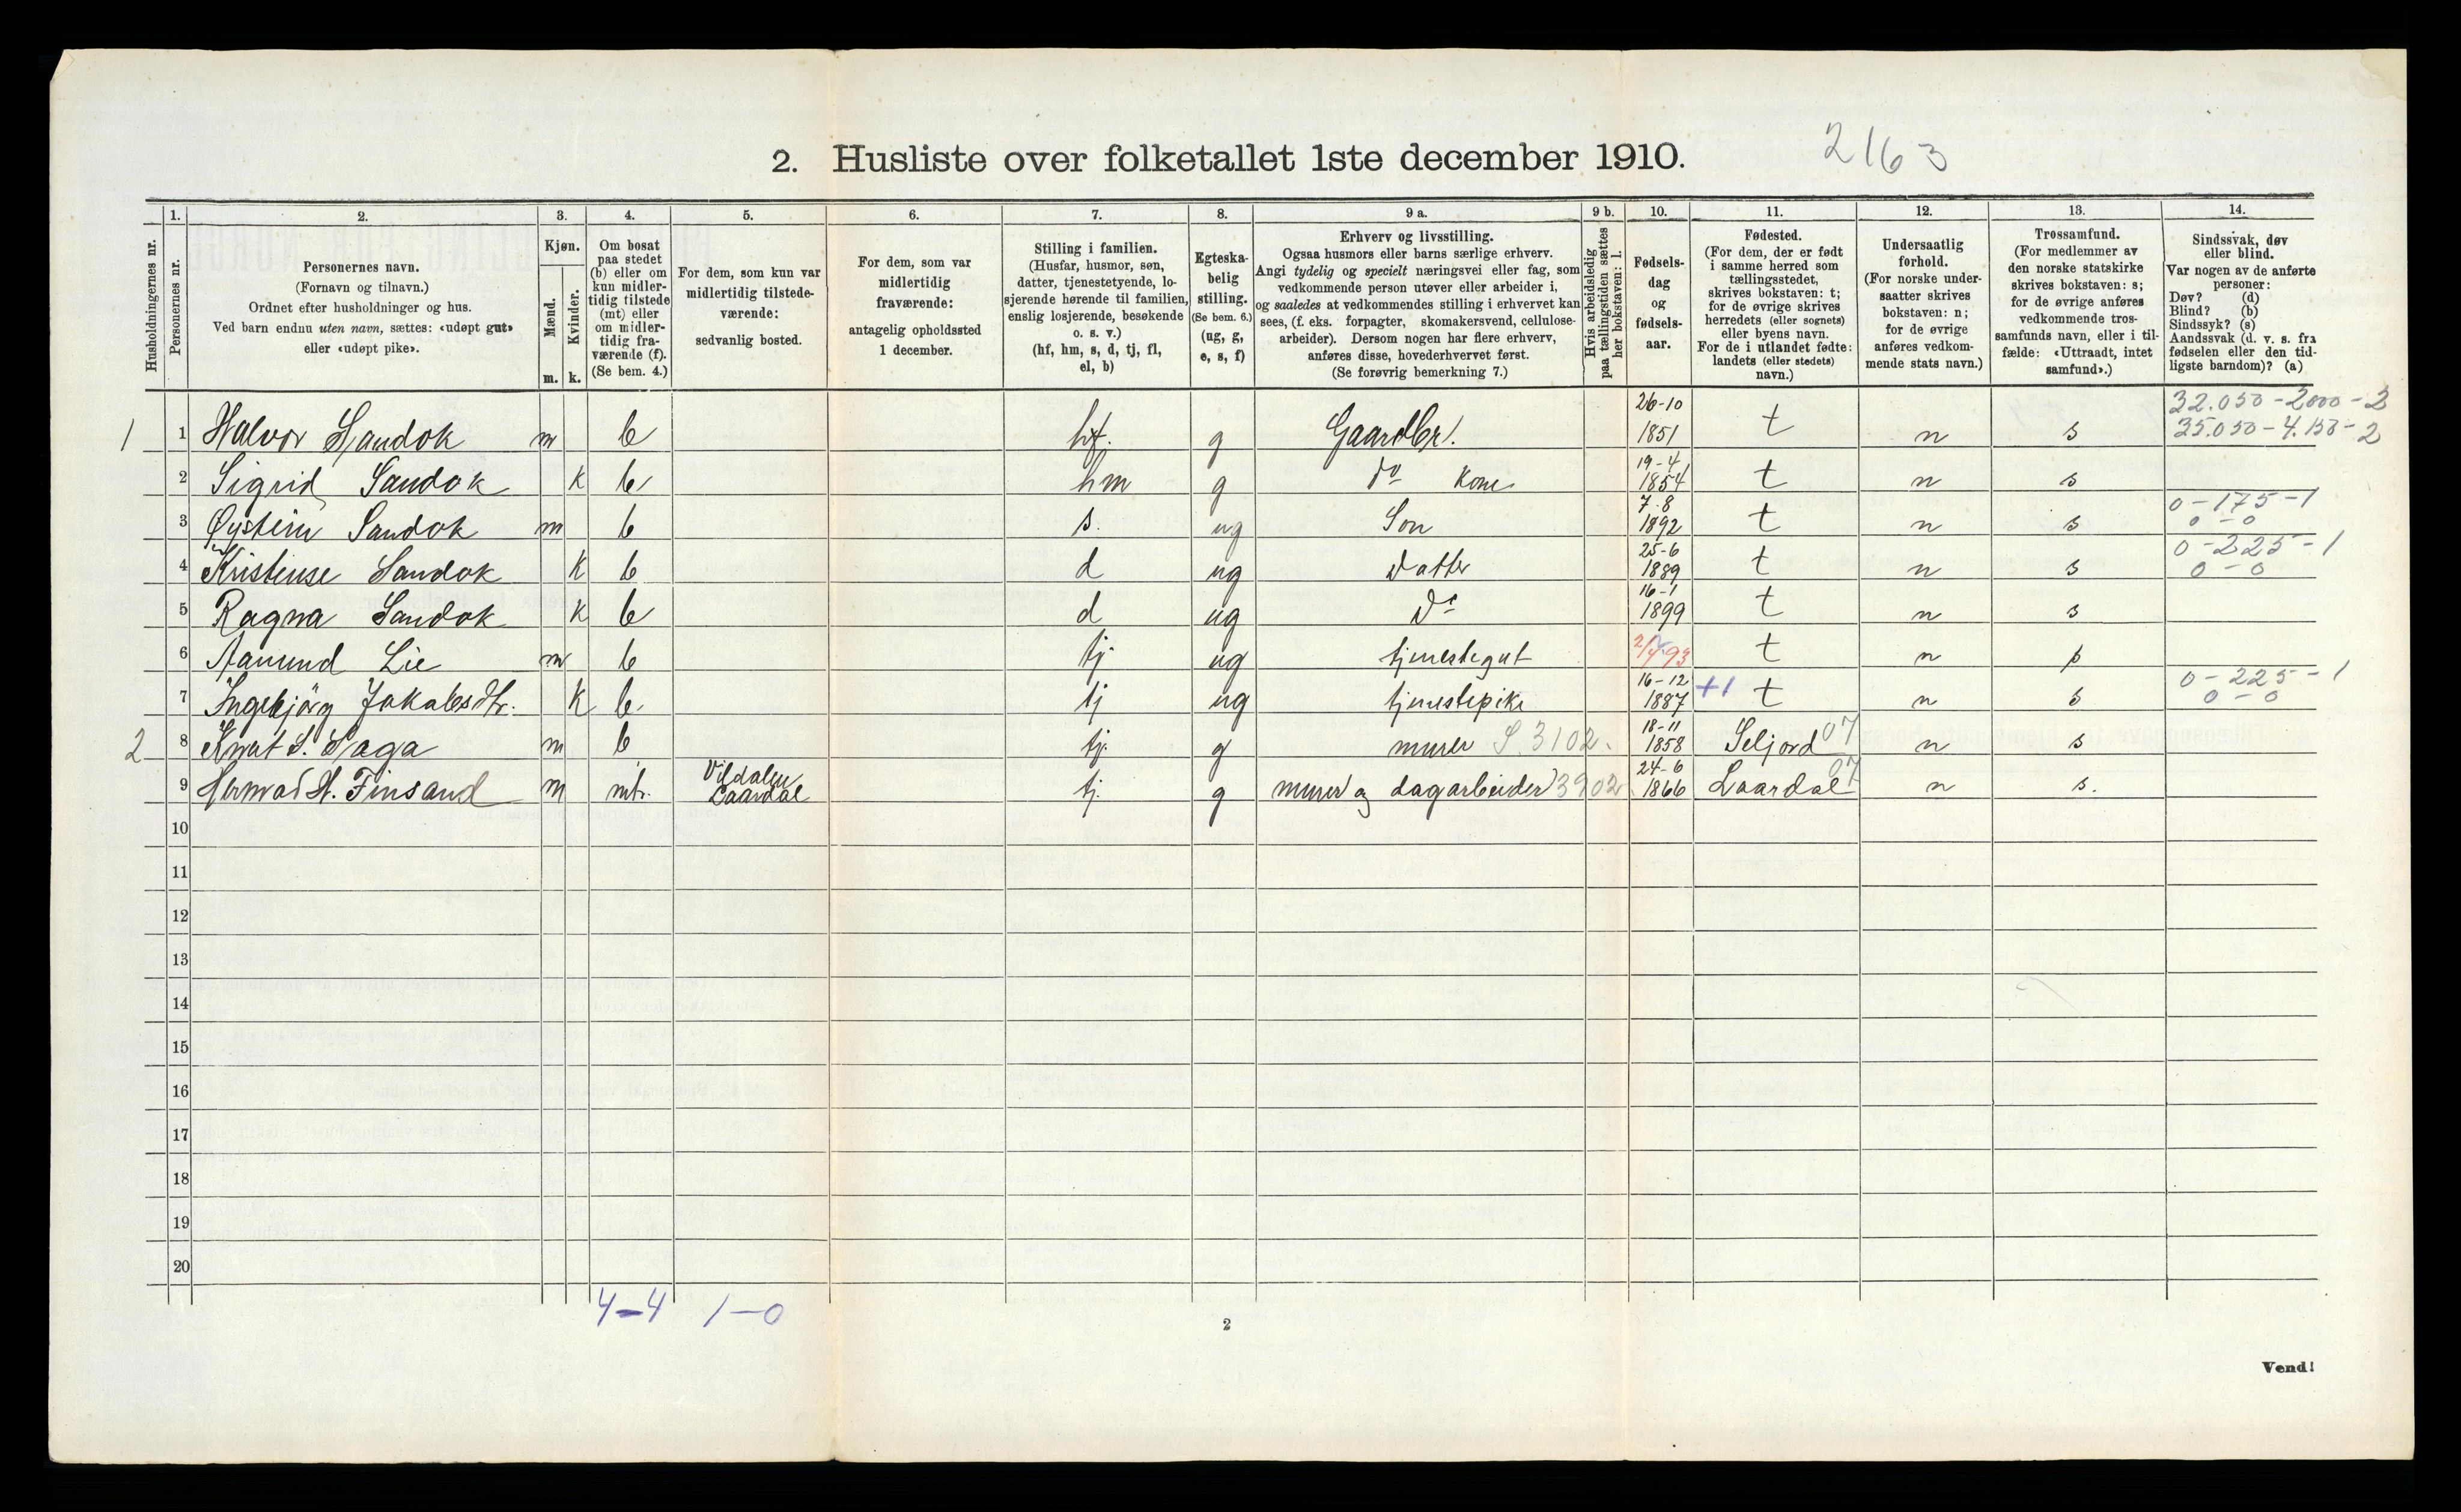 2. Husliste over folketallet 1ste december 1910. 2163
Husholdningernes nr.
1. Personernes nr.
2. Personernes navn.
(Fornavn og tilnavn.)
Ordnet efter husholdninger og hus.
Ved barn endnu uten navn, sættes: «udøpt gut»
eller «udøpt pike».
3. Kjøn.
Mænd. Kvinder.
m. k.
4. Om bosat
paa stedet
(b) eller om
kun midler-
tidig tilstede
(mt) eller
om midler-
tidig fra-
værende (f).
(Se bem. 4.)
5. For dem, som kun var
midlertidig tilstede-
værende:
sedvanlig bosted.
6. For dem, som var
midlertidig
fraværende:
antagelig opholdssted
1 december.
7. Stilling i familien.
(Husfar, husmor, søn,
datter, tjenestetyende, lo-
sjerende hørende til familien,
enslig losjerende, besøkende
o. s. v.)
(hf, hm, s, d, tj, fl,
el, b)
8. Egteska-
belig
stilling.
(Se bem. 6.)
(ug, g,
e, s, f)
9 a. Erhverv og livsstilling.
Ogsaa husmors eller barns særlige erhverv.
Angi tydelig og specielt næringsvei eller fag, som
vedkommende person utøver eller arbeider i,
og saaledes at vedkommendes stilling i erhvervet kan
sees, (f. eks. forpagter, skomakersvend, cellulose-
arbeider). Dersom nogen har flere erhverv,
anføres disse, hovederhvervet først.
(Se forøvrig bemerkning 7.)
9 b. Hvis arbeidsledig
paa tællingstiden sættes
her bokstaven: l.
10. Fødsels-
dag
og
fødsels-
aar.
11. Fødested.
(For dem, der er født
i samme herred som
tællingsstedet,
skrives bokstaven: t;
for de øvrige skrives
herredets (eller sognets)
eller byens navn.
For de i utlandet fødte:
landets (eller stedets)
navn.)
12. Undersaatlig
forhold.
(For norske under-
saatter skrives
bokstaven: n;
for de øvrige
anføres vedkom-
mende stats navn.)
13. Trossamfund.
(For medlemmer av
den norske statskirke
skrives bokstaven: s;
for de øvrige anføres
vedkommende tros-
samfunds navn, eller i til-
fælde: «Uttraadt, intet
samfund».)
14. Sindssvak, døv
eller blind.
Var nogen av de anførte
personer:
Døv? (d)
Blind? (b)
Sindssyk? (s)
Aandssvak (d. v. s. fra
fødselen eller den tid-
ligste barndom)? (a)
1 1 Halvor Sandok m b hf. g Gaardbr. 26-10 1851 t n s 32.050-2000-3 35.050-4.150-2
2 Sigrid Sandok k b hm g do kone 19-4 1854 t n s
3 Øystein Sandok m b s. ug Son 7-8 1892 t n s 0-175-1 0-0
4 Kristense Sandok k b d ug datter 25-6 1889 t n s 0-225-1 0-0
5 Ragna Sandok k b d ug do 16-1 1899 t n s
6 Aamund Lie m b tj. ug tjenestegut t n s
7 Ingebjörg Jakobsdtr. k b tj ug tjenestepike 16-12 1887 +1 t n s 0-225-1 0-0
2 8 Knut S. Haga m b tj. g murer S. 3102. 18-11 1858 Seljord 07 n s
9 H. Finsand m mt. Laardal tj. g murer og dagarbeider 3902 24-6 1866 Laardal 07 n s.
10
11
12
13
14
15
16
17
18
19
20
4-4 1-0
2
Vend!